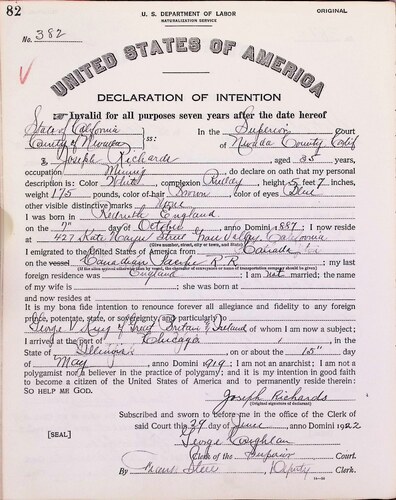 82
U. S. DEPARTMENT OF LABOR
NATURALIZATION SERVICE
ORIGINAL
No. 382
UNITED STATES OF AMERICA
DECLARATION OF INTENTION
Invalid for all purposes seven years after the date hereof
State of California
County of Nevada ss: In the Superior Court of Nevada County Calif
I, Joseph Richards, aged 35 years,
occupation Mining, do declare on oath that my personal
description is: Color White, complexion Ruddy, height 5 feet 7 inches,
weight 175 pounds, color of hair Brown, color of eyes Blue
other visible distinctive marks None
I was born in Redruth England
on the 7" day of October, anno Domini 1887; I now reside
at 427 Kate Hayes Street Grass Valley, California
(Give number, street, city or town, and State.)
I emigrated to the United States of America from Canada
on the vessel Canadian Pacific R R; my last
(If the alien arrived otherwise than by vessel, the character of conveyance or name of transportation company should be given.)
foreign residence was England; I am not married; the name
of my wife is; she was born at
and now resides at
It is my bona fide intention to renounce forever all allegiance and fidelity to any foreign
prince, potentate, state, or sovereignty, and particularly to
George V King of Great Britain & Ireland of whom I am now a subject;
I arrived at the port of Chicago, in the
State of Illinois, on or about the 15" day
of May, anno Domini 1919; I am not an anarchist; I am not a
polygamist nor a believer in the practice of polygamy; and it is my intention in good faith
to become a citizen of the United States of America and to permanently reside therein:
SO HELP ME GOD.
Joseph Richards
(Original signature of declarant.)
Subscribed and sworn to before me in the office of the Clerk of
[SEAL] said Court this 29 day of June, anno Domini 1922
George Coughlan
Clerk of the Superior Court.
By Deputy Clerk.